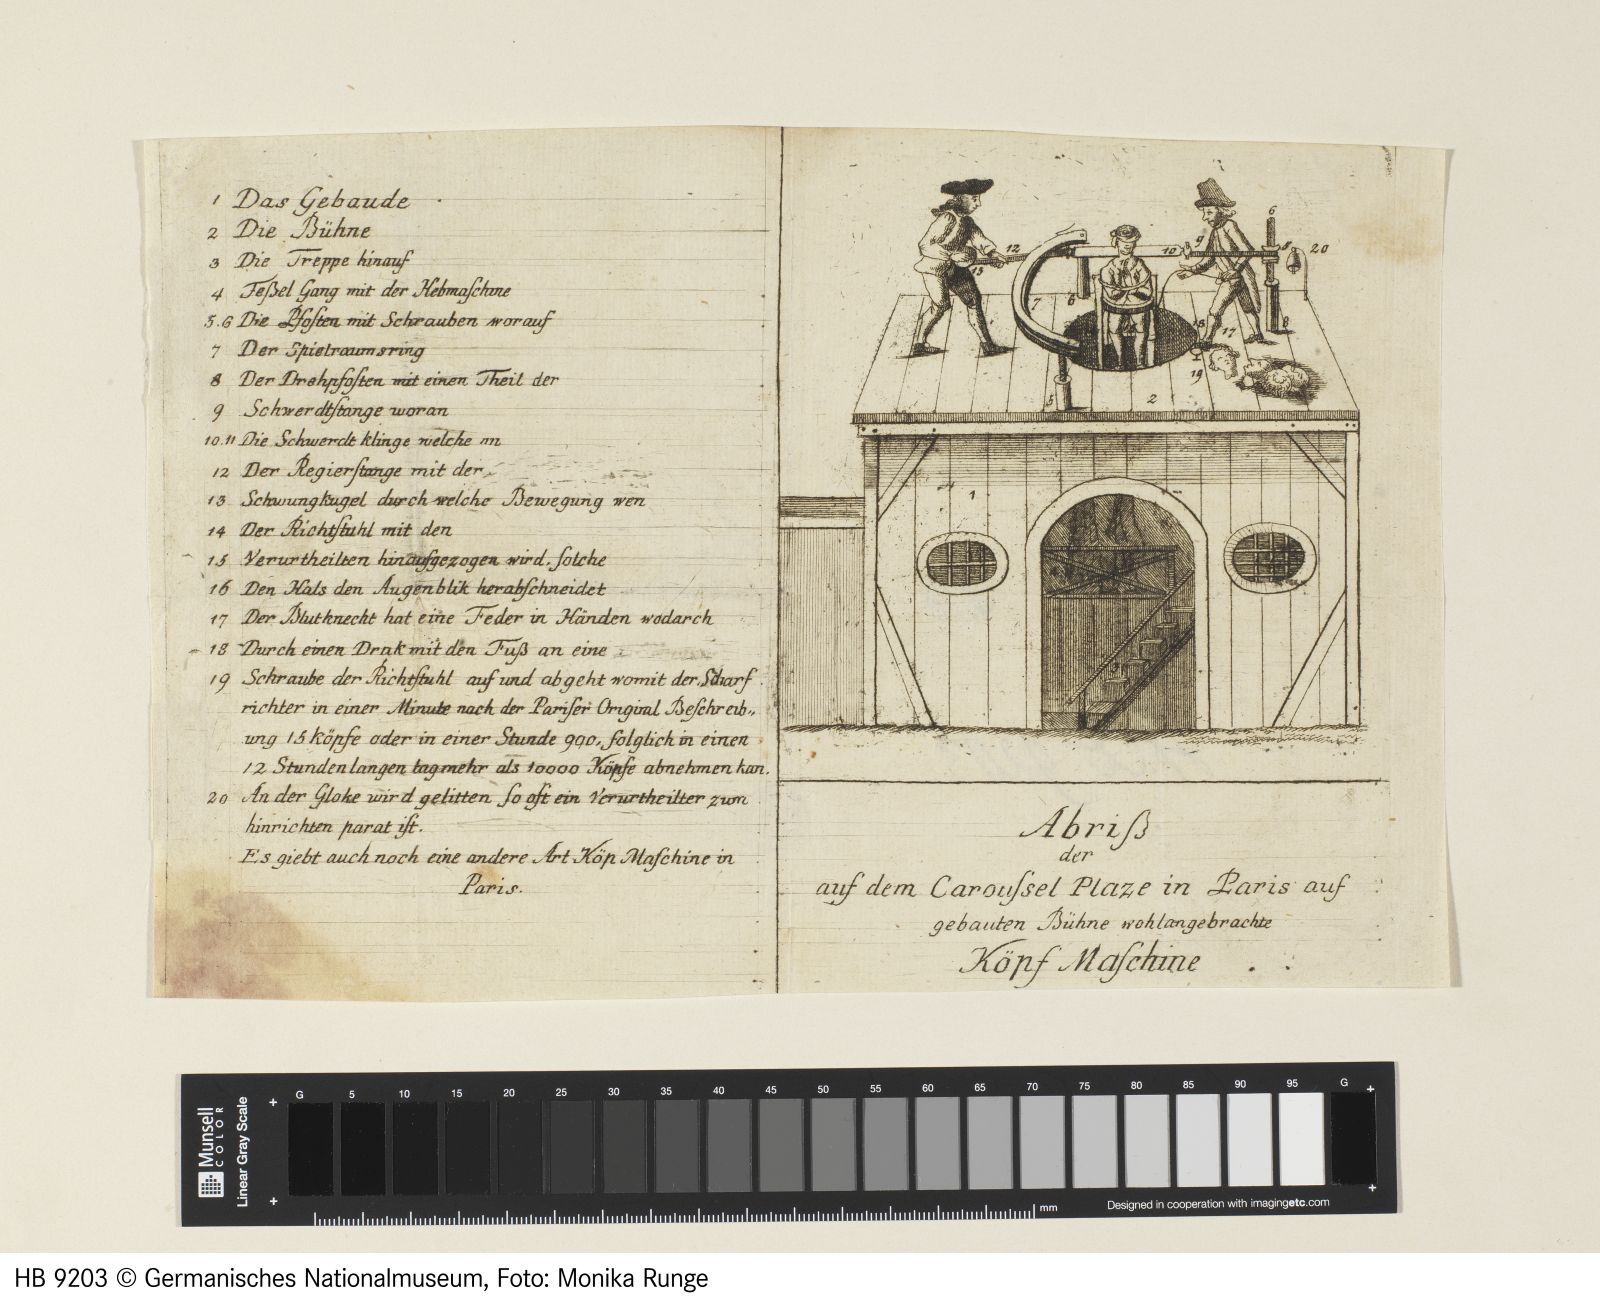 1 Das Gebaude
2 Die Bühne
3 Die Treppe hinauf
4 Feßel Gang mit der Hebmaſchine
5.6 Die Pfoſten mit Schrauben worauf
7 Der Spielraumsring
8 Der Drehpfoſten mit einen Theil der
9 Schwerdtſtange woran
10.11 Die Schwerdt klinge welche an
12 Der Regierſtange mit der
13 Schwungkugel durch welche Bewegung wen
14 Der Richtſtuhl mit den
15 Verurtheilten hinaufgezogen wird, ſolche
16 Den Hals den Augenblik herabſchneidet
17 Der Blutknecht hat eine Feder in Händen wodarch
18 Durch einen Druk mit den Fuß an eine
19 Schraube der Richtſtuhl auf und abgeht womit der Scharf
richter in einer Minute nach der Pariſer Original Beſchreib,,
ung 15 köpfe oder in einer Stunde 900, folglich in einen
12 Stunden langen tag mehr als 10000 Köpfe abnehmen kan.
20 An der Gloke wird gelitten ſo oft ein Verurtheilter zum
hinrichten parat iſt.
Es giebt auch noch eine andere Art Köp Maſchine in
Paris.
6
9
20
12
10
5
13
7
6
8
18
17
19
5
2
1
3
Abriß
der
auf dem Carouſsel Plaze in Paris auf
gebauten Bühne wohlangebrachte
Köpf Maſchine
Munsell
COLOR
Linear Gray Scale
G 5 10 15 20 25 30 35 40 45 50 55 60 65 70 75 80 85 90 95 G
mm
Designed in cooperation with imagingetc.com
HB 9203 © Germanisches Nationalmuseum, Foto: Monika Runge